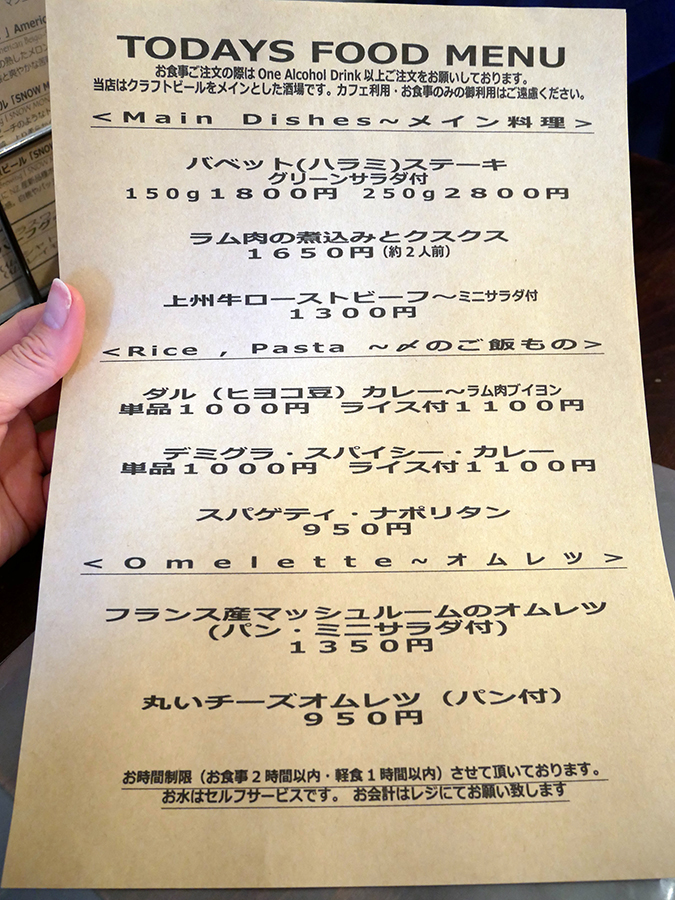 TODAYS FOOD MENU
お食事ご注文の際は One Alcohol Drink 以上ご注文をお願いしております。
当店はクラフトビールをメインとした酒場です。カフェ利用・お食事のみの御利用はご遠慮ください。
<Main Dishes~メイン料理>
バベット(ハラミ)ステーキ
グリーンサラダ付
150g1800円 250g2800円
ラム肉の煮込みとクスクス
1650円(約2人前)
上州牛ローストビーフ～ミニサラダ付
1300円
<Rice , Pasta ~〆のご飯もの>
ダル(ヒヨコ豆)カレー～ラム肉ブイヨン
単品1000円 ライス付1100円
デミグラ・スパイシー・カレー
単品1000円 ライス付1100円
スパゲティ・ナポリタン
950円
<Omelette~オムレツ>
フランス産マッシュルームのオムレツ
(パン・ミニサラダ付)
1350円
丸いチーズオムレツ(パン付)
950円
お時間制限(お食事2時間以内・軽食1時間以内)させて頂いております。
お水はセルフサービスです。 お会計はレジにてお願い致します